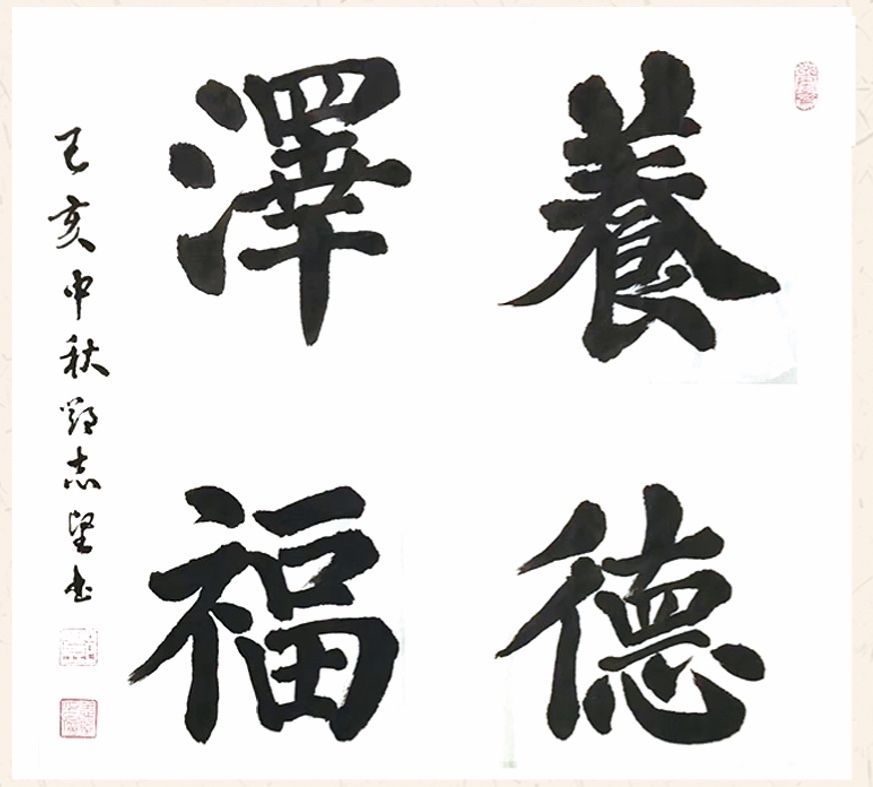 養德
澤福
己亥中秋志堅书